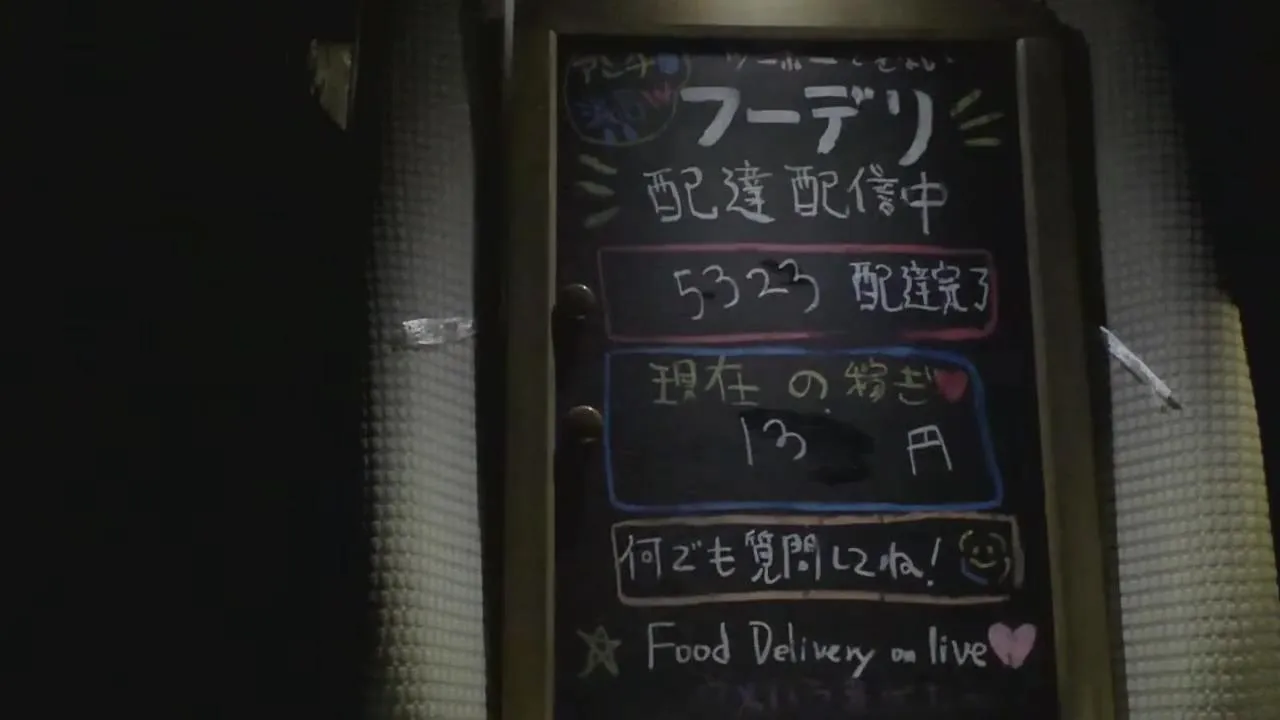 アンチ
フーデリ
配達配信中
5323 配達完了
現在の稼ぎ
13 円
何でも質問してね!
Food Delivery on live